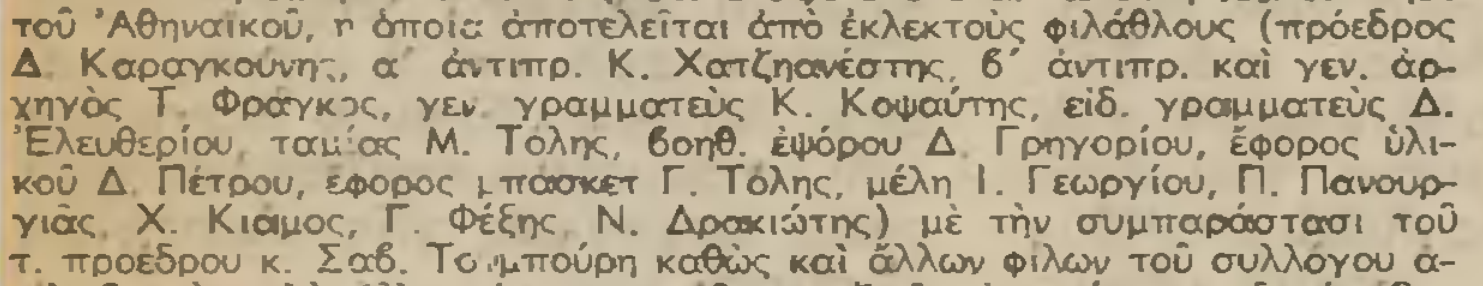 τοῦ Ἀθηναικοῦ, η ὁποία ἀποτελεῖται ἀπὸ ἐκλεκτοὺς φιλάθλους (πρόεδρος
Δ. Καραγκούνης, α΄ ἀντιπρ. Κ. Χατζηανέστης, β΄ ἀντιπρ. καὶ γεν. ἀρ-
χηγὸς Τ. Φράγκος, γεν. γραμματεὺς Κ. Κοψαύτης, εἰδ. γραμματεὺς Δ.
Ἐλευθερίου, ταμίας Μ. Τόλης, βοηθ. ἐψόρου Δ. Γρηγορίου, ἔφορος ὑλι-
κοῦ Δ. Πέτρου, ἔφορος μπάσκετ Γ. Τόλης, μέλη Ι. Γεωργίου, Π. Πανουρ-
γιᾶς, Χ. Κιαιμος, Γ. Φέξης, Ν. Δρακιώτης) μὲ τὴν συμπαράστασι τοῦ
τ. προέδρου κ. Σαβ. καθὼς καὶ ἄλλων φίλων τοῦ συλλόγου ἀ-